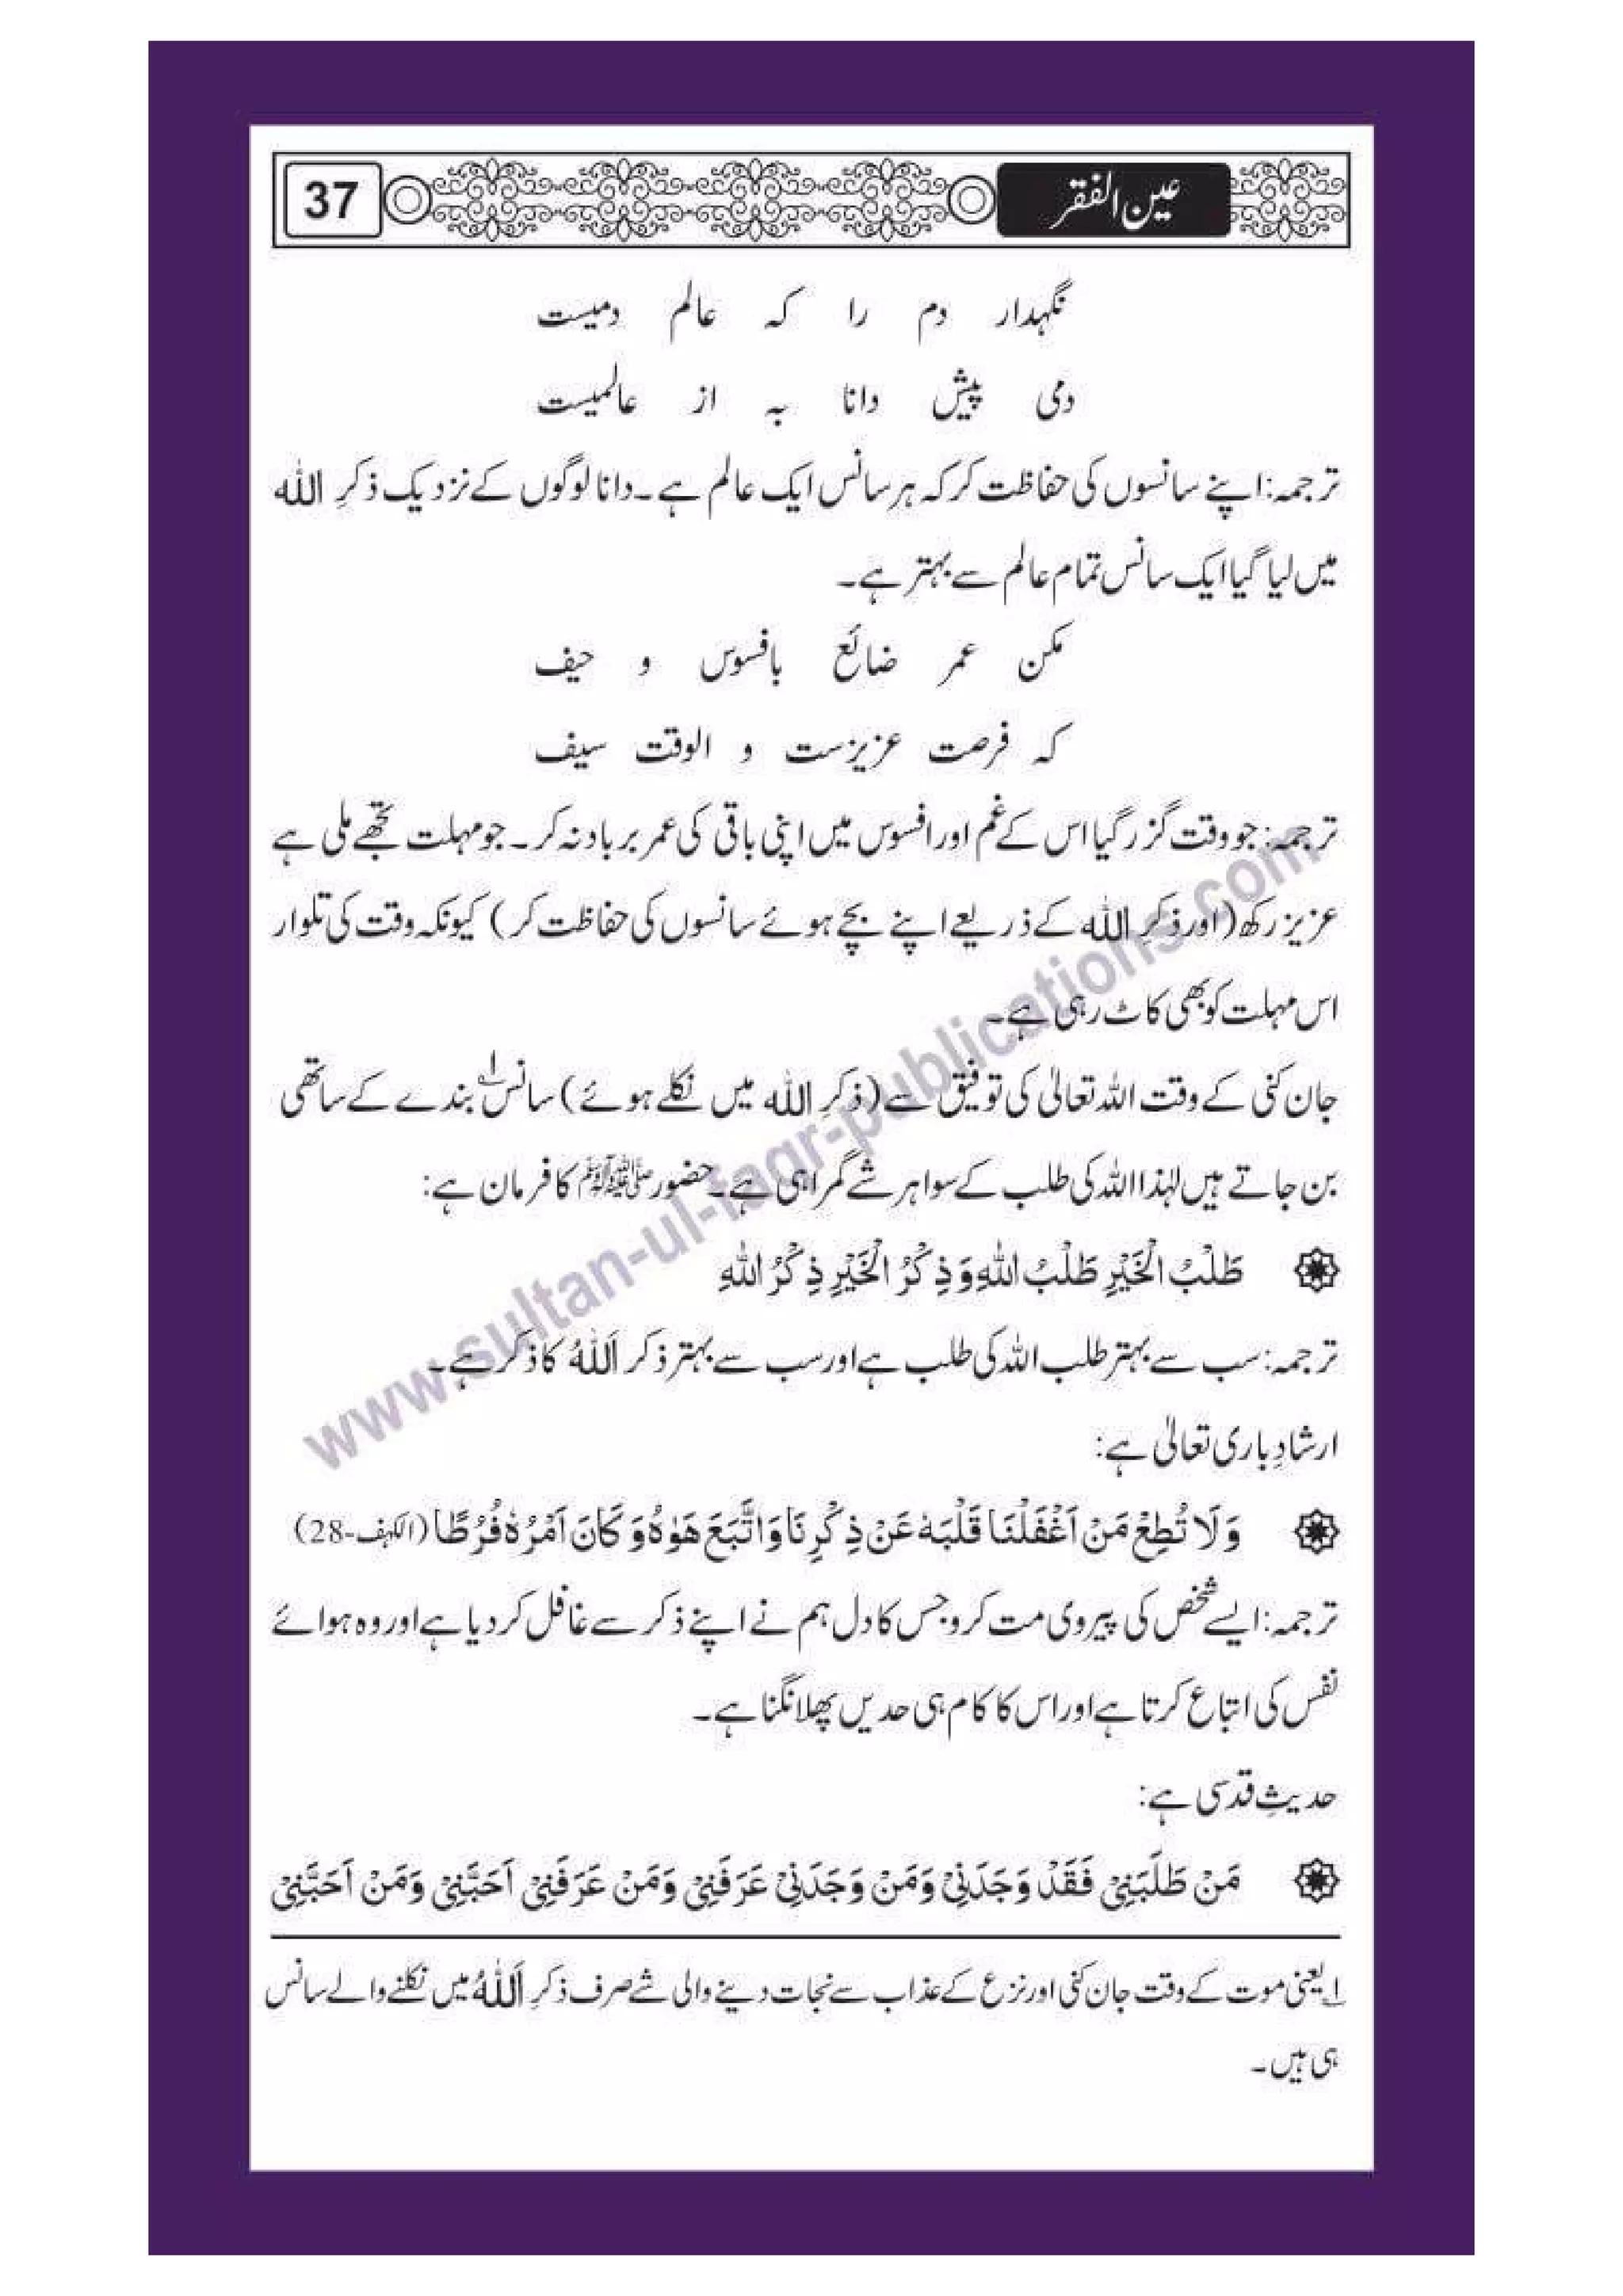 عین الفقر
37
نگہدار دم را کہ عالم دمیست
دمی پیش دانا بہ از عالمیست
ترجمہ: اپنے سانسوں کی حفاظت کر کہ ہر سانس ایک عالم ہے۔ دانا لوگوں کے نزدیک ذکرِ اللہ
میں لیا گیا ایک سانس تمام عالم سے بہتر ہے۔
مکن عمر ضائع بافسوس و حیف
کہ فرصت عزیزست و الوقت سیف
ترجمہ: جو وقت گزر گیا اس کے غم اور افسوس میں اپنی باقی کی عمر برباد نہ کر۔ جو مہلت تجھے ملی ہے
عزیز رکھ (اور ذکرِ اللہ کے ذریعے اپنے بچے ہوئے سانسوں کی حفاظت کر) کیونکہ وقت کی تلوار
اس مہلت کو بھی کاٹ رہی ہے۔
جان کنی کے وقت اللہ تعالیٰ کی توفیق سے (ذکرِ اللہ میں نکلے ہوئے) سانس۱ بندے کے ساتھی
بن جاتے ہیں لہٰذا اللہ کی طلب کے سوا ہر شے گمراہی ہے۔ حضور ﷺ کا فرمان ہے:
طَلْبُ الْخَيْرِ طَلْبُ اللهِ وَ ذِكْرُ الْخَيْرِ ذِكْرُ اللهِ
ترجمہ: سب سے بہتر طلب اللہ کی طلب ہے اور سب سے بہتر ذکر اَللّٰہُ کا ذکر ہے۔
ارشادِ باری تعالیٰ ہے:
وَ لَا تُطِعْ مَنْ اَغْفَلْنَا قَلْبَهٗ عَنْ ذِكْرِنَا وَاتَّبَعَ هَوٰهُ وَ كَانَ اَمْرُهٗ فُرُطًا (الکہف-28)
ترجمہ: ایسے شخص کی پیروی مت کرو جس کا دل ہم نے اپنے ذکر سے غافل کر دیا ہے اور وہ ہوائے
نفس کی اتباع کرتا ہے اور اس کا کام ہی حدیں پھلانگنا ہے۔
حدیثِ قدسی ہے:
مَنْ طَلَبَنِيْ فَقَدْ وَجَدَنِيْ وَمَنْ وَجَدَنِيْ عَرَفَنِيْ وَمَنْ عَرَفَنِيْ اَحَبَّنِيْ وَمَنْ اَحَبَّنِيْ
۱ یعنی موت کے وقت جان کنی اور نزع کے عذاب سے نجات دینے والی شے صرف ذکرِ اَللّٰہُ میں نکلنے والے سانس
ہی ہیں۔
www.sultan-ul-faqr-publications.com